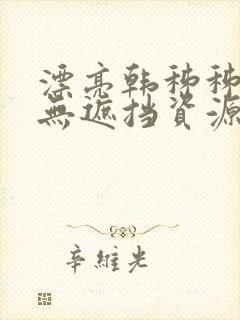 漂亮韩秭秭
無遮挡資源
辛維光